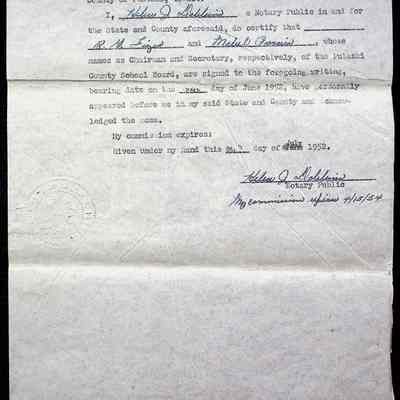 I, Helen J. Baldwin a Notary Public in and for
the State and County aforesaid, do certify that
and Mabel, whose
names as Chairman and Secretary, respectively, of the Pulaski
County School Board, are signed to the foregoing writing,
bearing date on the day of June 1952, have personally
appeared before me in my said State and County and acknow-
ledged the same.
My commission expires:
Given under my hand this day of June July 1952.
Helen J. Baldwin
Notary Public
My commission expires 4/15/54